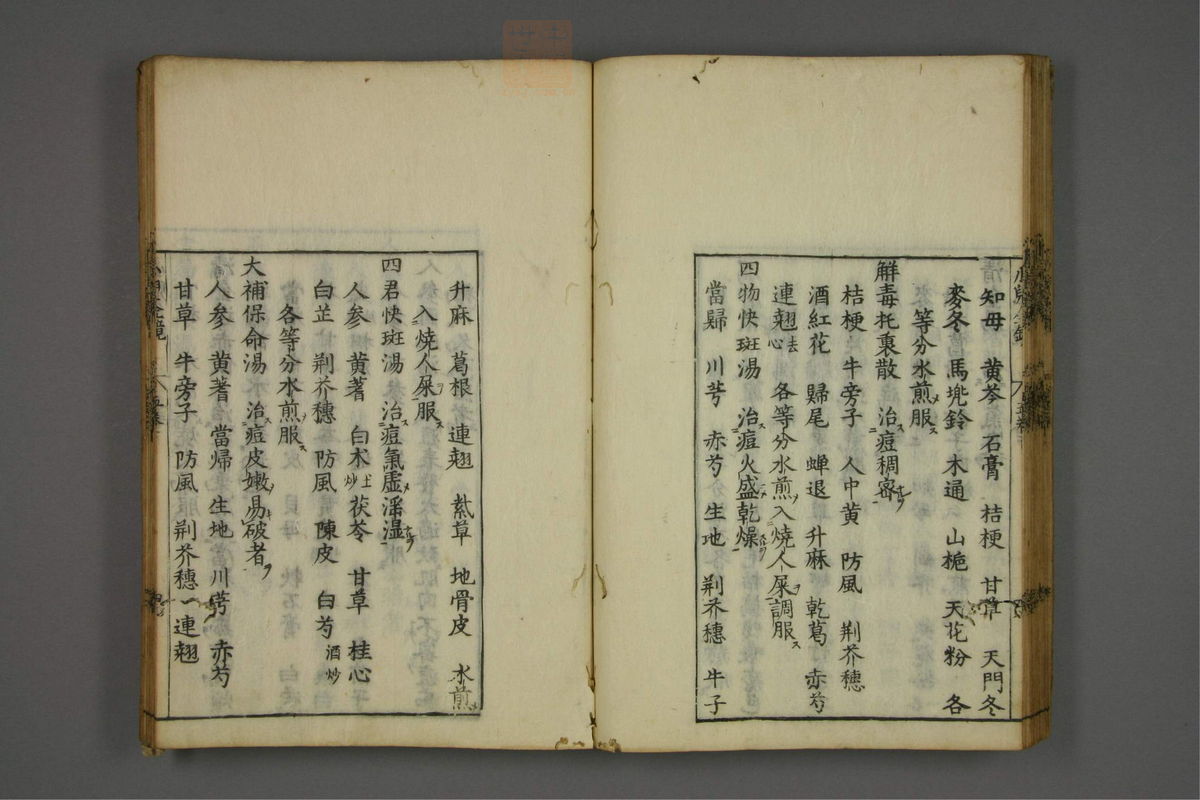 知母　黄芩　石膏　桔梗　甘草　天門冬
麥冬　馬兠鈴　木通　山梔　天花粉　各
等分水煎服
解毒托裏散　治痘稠宻
桔梗　牛旁子　人中黄　防風　荆芥穗
酒紅花　歸尾　蝉退　升麻　乾葛　赤芍
連翹去心　各等分水煎入燒人屎調服
四物快斑湯　治痘火盛乾燥
當歸　川芎　赤芍　生地　荆芥穗　牛子
升麻　葛根　連翹　紫草　地骨皮　水煎
入燒人屎服
四君快斑湯　治痘氣虚淫湿
人参　黄蓍　白术土炒　茯苓　甘草　桂心
白芷　荆芥穗　防風　陳皮　白芍酒炒
各等分水煎服
大補保命湯　治痘皮嫩易破者
人参　黄蓍　當帰　生地　川芎　赤芍
甘草　牛旁子　防風　荆芥穗　連翹